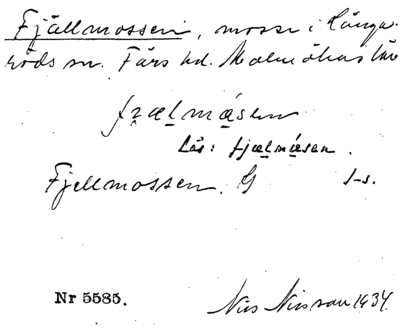 Fjällmossen, mosse i Långa-
röds sn. Färs hd. Malmöhus län
fjælmåsen
Läs: fjælmåsen.
Fjellmossen. G I-s.
Nr 5585.
Nils Nilsson 1934.